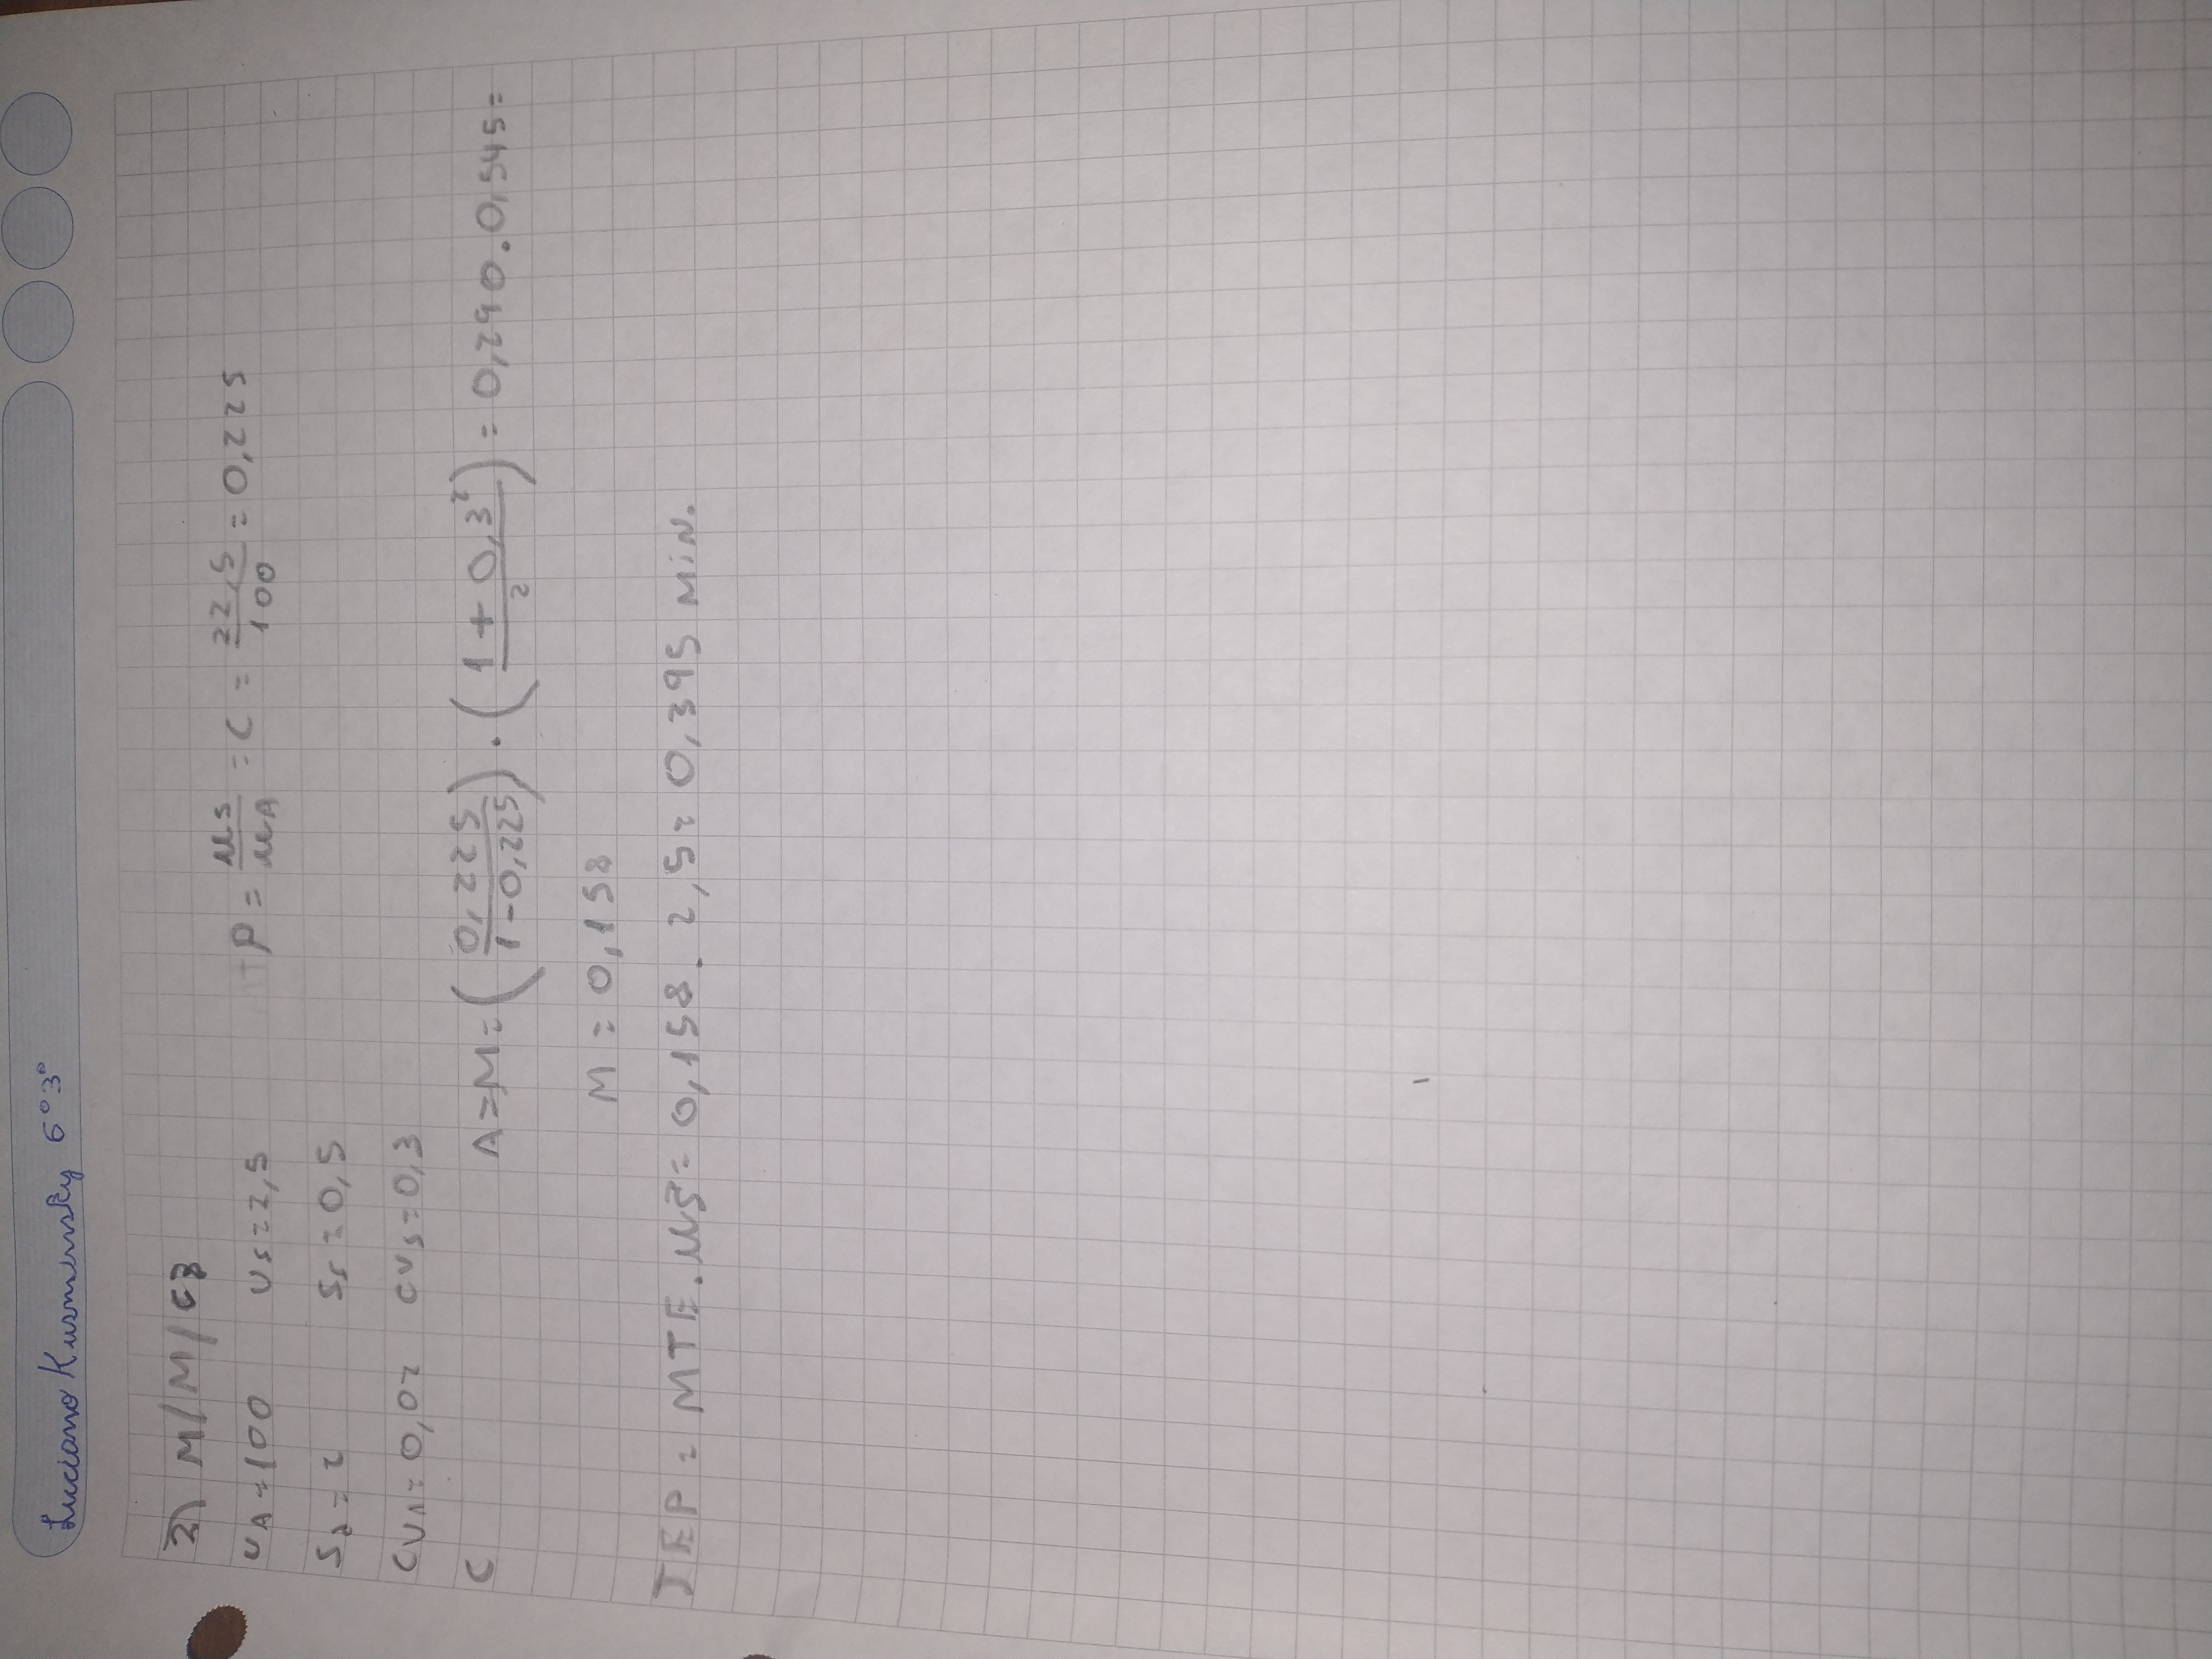 Luciano Kusmensky 6°3°
2) M/M/C3
UA=100 US=2,5
ρ = μS/μA = C = 22,5/100 = 0,225
Sa=2 SS=0,5
CVA=0,02 CVS=0,3
C A=M=(0,225/1-0,225).(1+0,3²/2)=0,290.0,545=
M=0,158
TEP=MTE.μS=0,158.2,5=0,395 MiN.